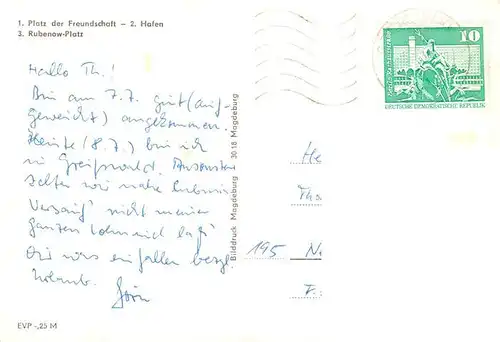 1. Platz der Freundschaft – 2. Hafen
3. Rubenow-Platz
Hallo Th.!
Bin am 7.7. gut (auf-
geweicht) angekommen.
Heute (8.7.) bin ich
in Greifswald. Ansonsten
zelten wir nahe Lubmin
nicht meinen
ganzen
was einfallen bezgl.
Urlaub. Jörn
EVP -,25 M
Bilddruck Magdeburg 1 3018 Magdeburg
10
DEUTSCHE DEMOKRATISCHE REPUBLIK
He
Tho
195 N
F.